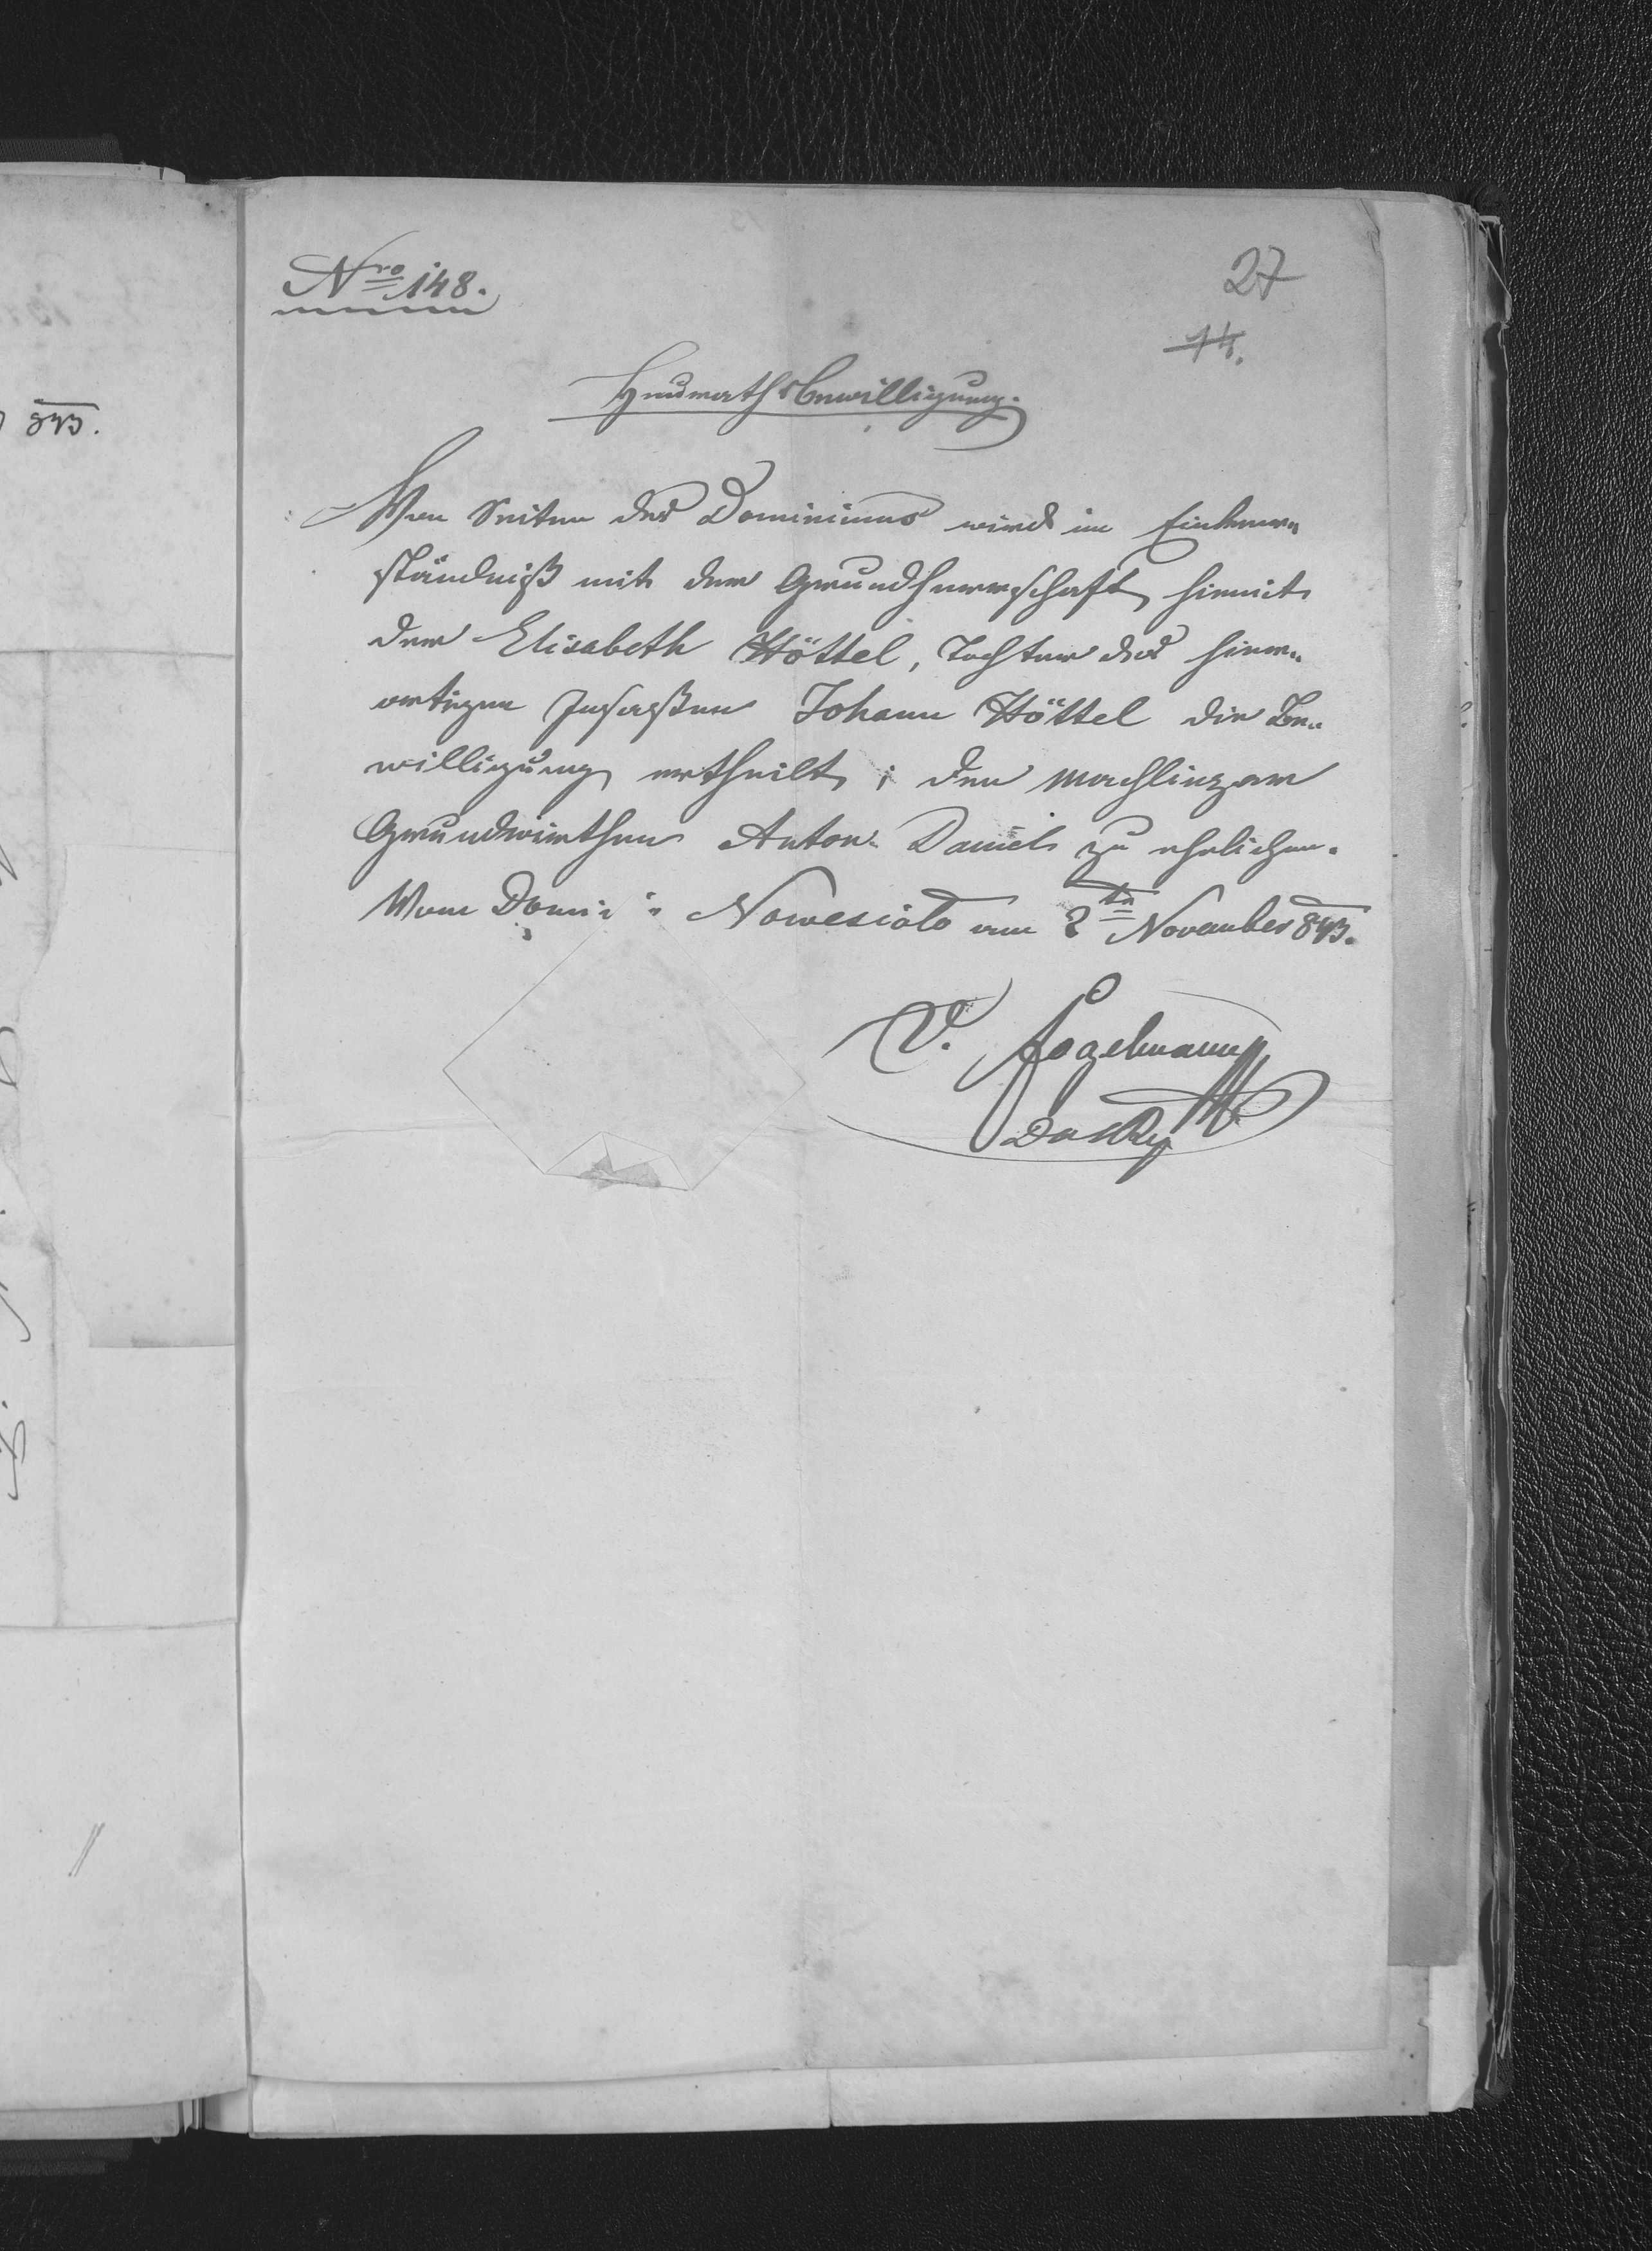 843.
Nro 148.
27
14.
Heurathsbewilligung.
Von Seiten des Dominiums wird im Einver„
ständniß mit der Grundherrschaft hiemit
der Elisabeth Höttel, Tochter des hier„
ortigen Insaßen Johann Höttel die Be„
willigung ertheilt; den Machlinzer
Grundwirthen Anton Daniel zu ehelichen.
Vom Domi Nowesioło am 2ten November 843.
V. Fogelmann